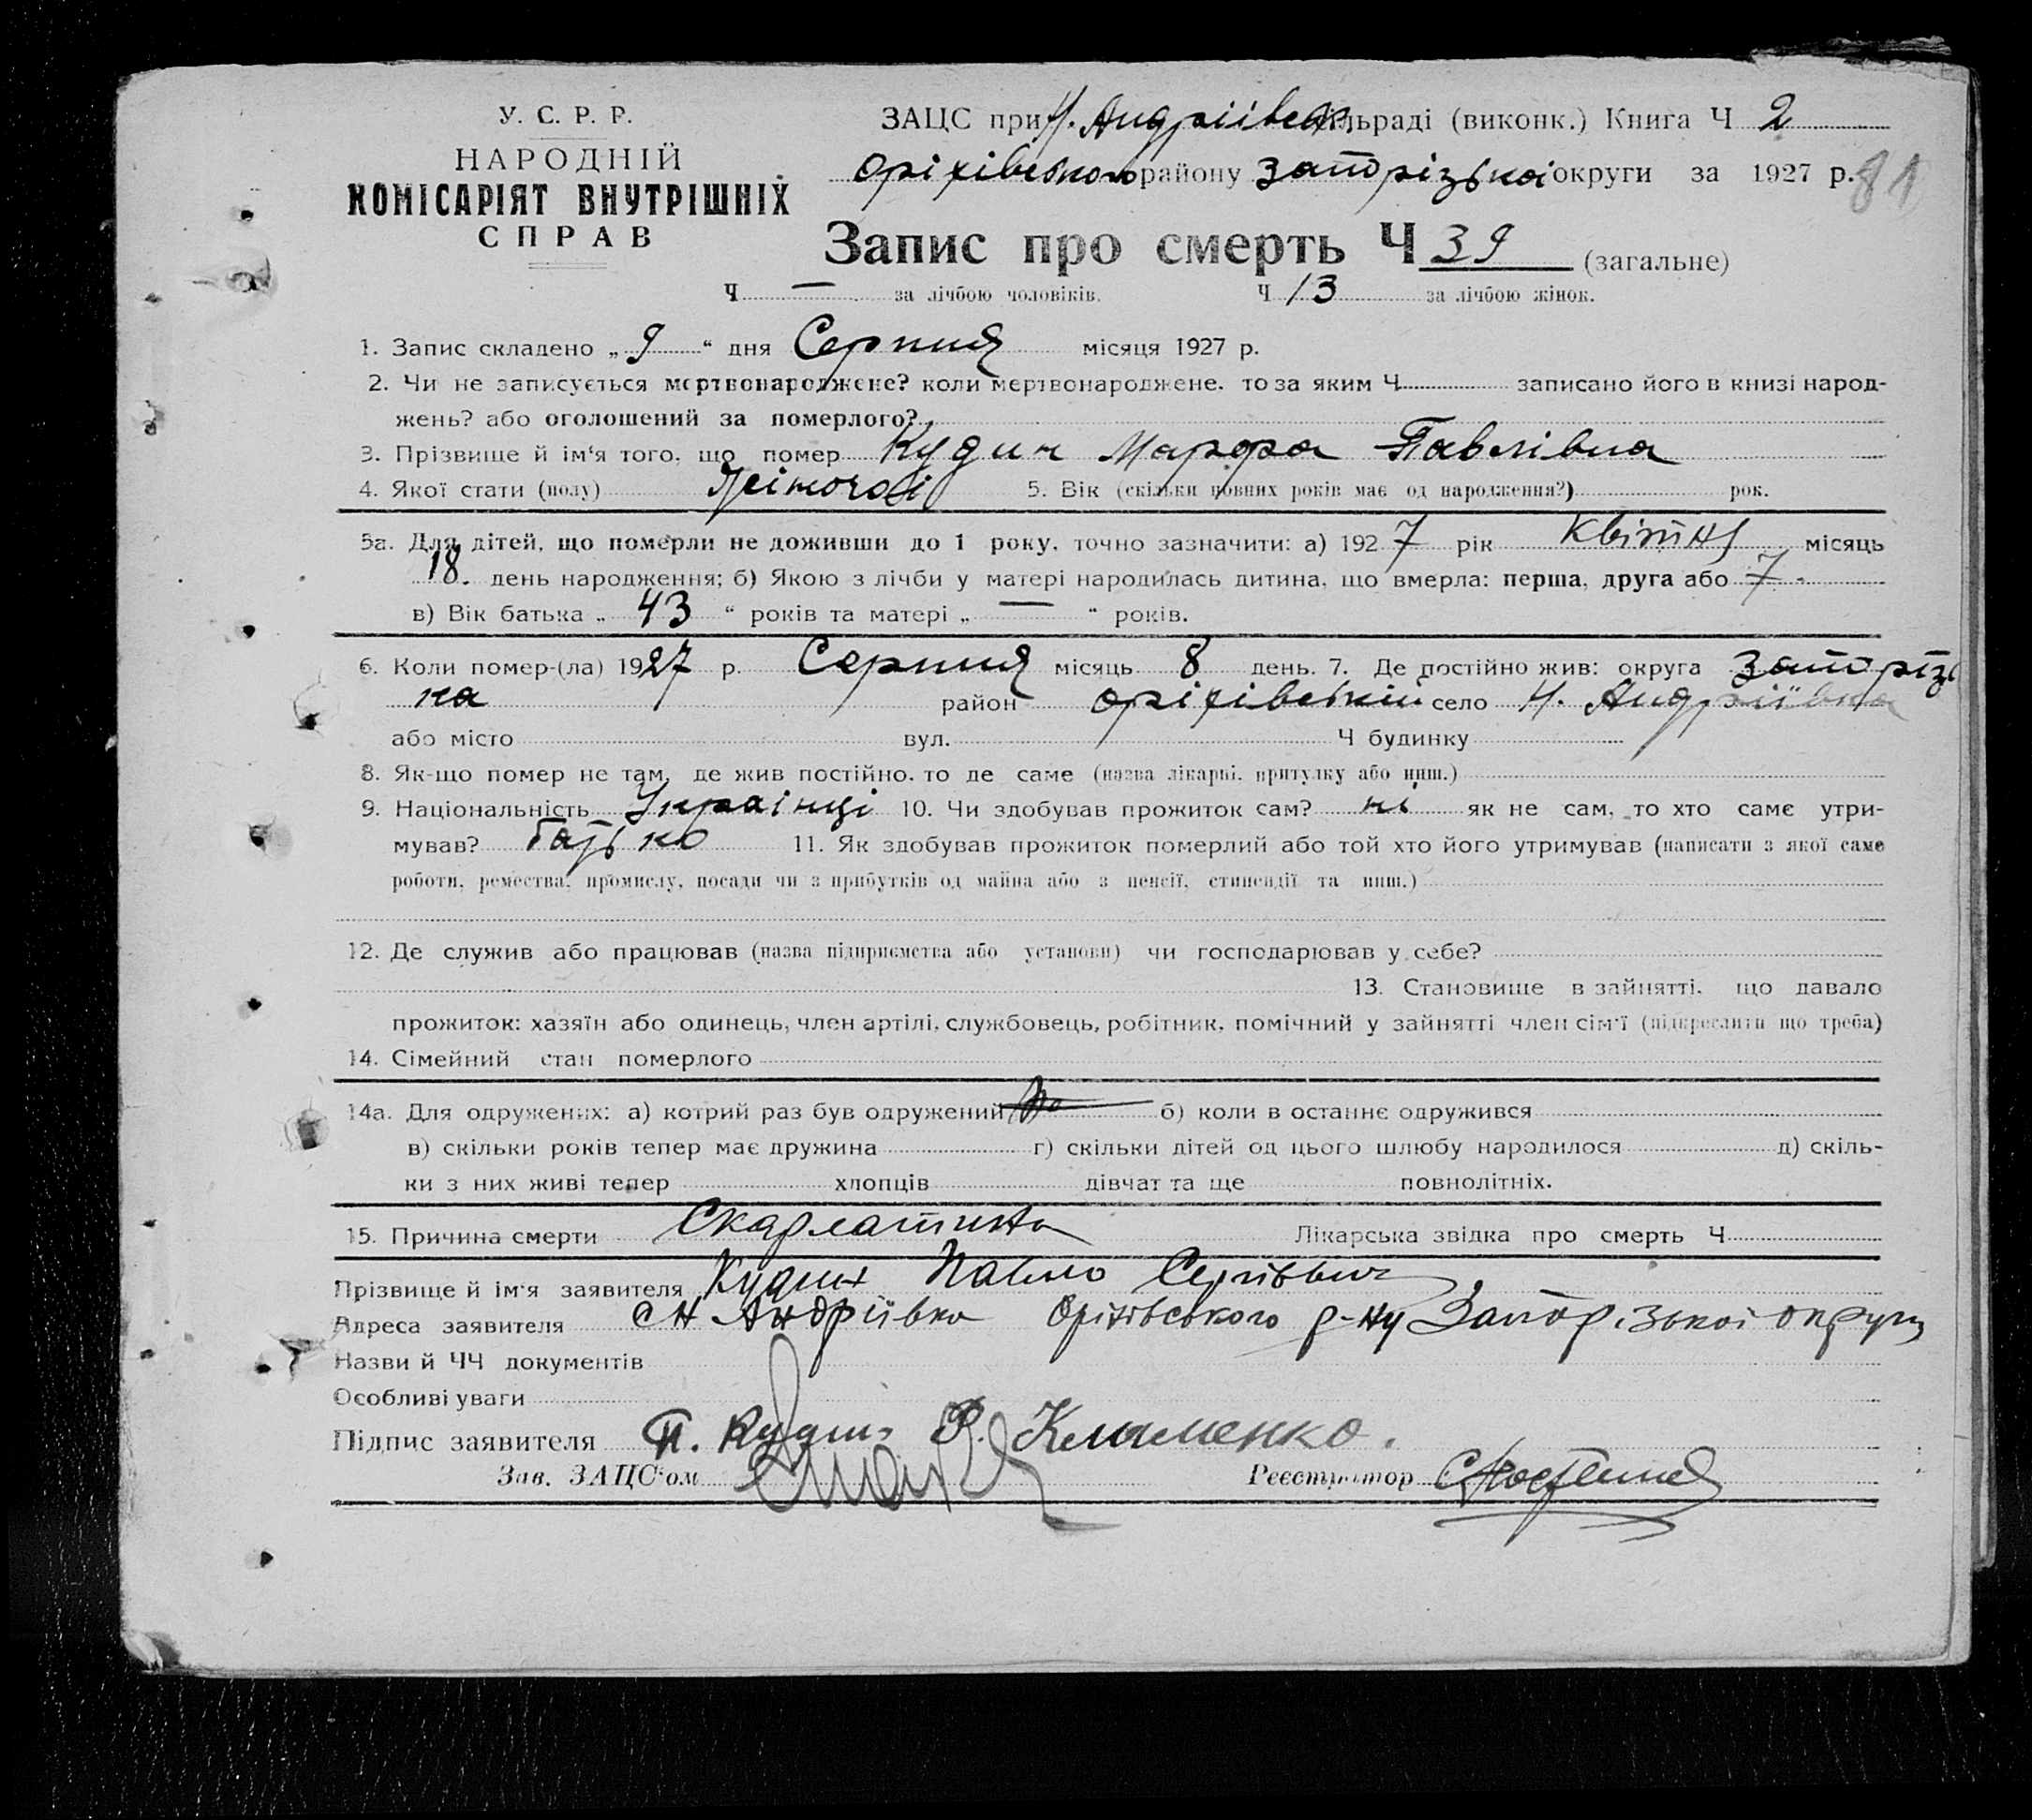 У. С. Р. Р.
НАРОДНІЙ
КОМІСАРІЯТ ВНУТРІШНІХ
СПРАВ
ЗАЦС при Н. Андріївськ сільраді (виконк.) Книга Ч 2
Оріхівського району Запорізької округи за 1927 р. 81
Запис про смерть Ч 39 (загальне)
Ч — за лічбою чоловіків. Ч 13 за лічбою жінок.
1. Запис складено „ 9 “ дня Серпня місяця 1927 р.
2. Чи не записується мертвонароджене? коли мертвонароджене. то за яким Ч записано його в книзі народ-
жень? або оголошений за померлого?
3. Прізвище й ім‘я того, що помер Кудин Марфа Павлівна
4. Якої стати (полу) Жіночої 5. Вік (скільки повних років має од народження?) рок.
5а. Для дітей, що померли не доживши до 1 року, точно зазначити: а) 1927 рік Квітня місяць
18. день народження; б) Якою з лічби у матері народилась дитина, що вмерла: перша, друга або 7
в) Вік батька „ 43 “ років та матері „ — “ років.
6. Коли помер-(ла) 1927 р. Серпня місяць 8 день. 7. Де постійно жив: округа Запорізь
ка район Оріхівській село Н. Андріївка
або місто вул. Ч будинку
8. Як-що помер не там, де жив постійно. то де саме (назва лікарні. притулку або инш.)
9. Національність Українці 10. Чи здобував прожиток сам? ні як не сам, то хто саме утри-
мував? батько 11. Як здобував прожиток померлий або той хто його утримував (написати з якої саме
роботи, ремества, промислу, посади чи з прибутків од майна або з пенсії, стипендії та инш.)
12. Де служив або працював (назва підприємства або установи) чи господарював у себе?
13. Становище в зайнятті. що давало
прожиток: хазяїн або одинець, член артілі, службовець, робітник, помічний у зайнятті член сім‘ї (підкреслити що треба)
14. Сімейний стан померлого
14а. Для одружених: а) котрий раз був одружений б) коли в останнє одружився
в) скільки років тепер має дружина г) скільки дітей од цього шлюбу народилося д) скіль-
ки з них живі тепер хлопців дівчат та ще повнолітніх.
15. Причина смерти Скарлатина Лікарська звідка про смерть Ч
Прізвище й ім‘я заявителя Кудин Павло Сергієвич
Адреса заявителя с Н Андріївка Оріхівського р-ну Запорізької округи
Назви й ЧЧ документів
Особливі уваги
Підпис заявителя П. Кудин Клименко.
Зав. ЗАЦС‘ом Реєстратор